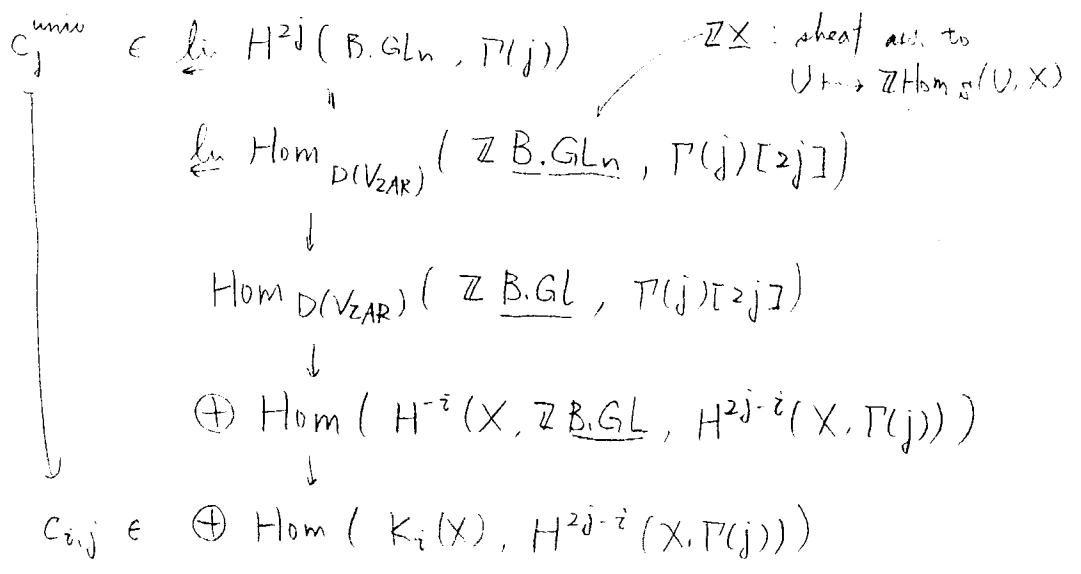 C_j^{univ} ∈ lim← H^{2j}( B.GLn , Γ(j))
ℤX : sheaf ass. to
U ↦ ℤHom_S(U, X)
lim← Hom_{D(V_{ZAR})} ( ℤ B.GLn , Γ(j)[2j])
↓
Hom_{D(V_{ZAR})} ( ℤ B.GL , Γ(j)[2j])
↓
⊕ Hom ( H^{-i}(X, ℤ B.GL , H^{2j-i}(X, Γ(j)) )
↓
C_{i,j} ∈ ⊕ Hom ( K_i(X) , H^{2j-i}(X, Γ(j)) )